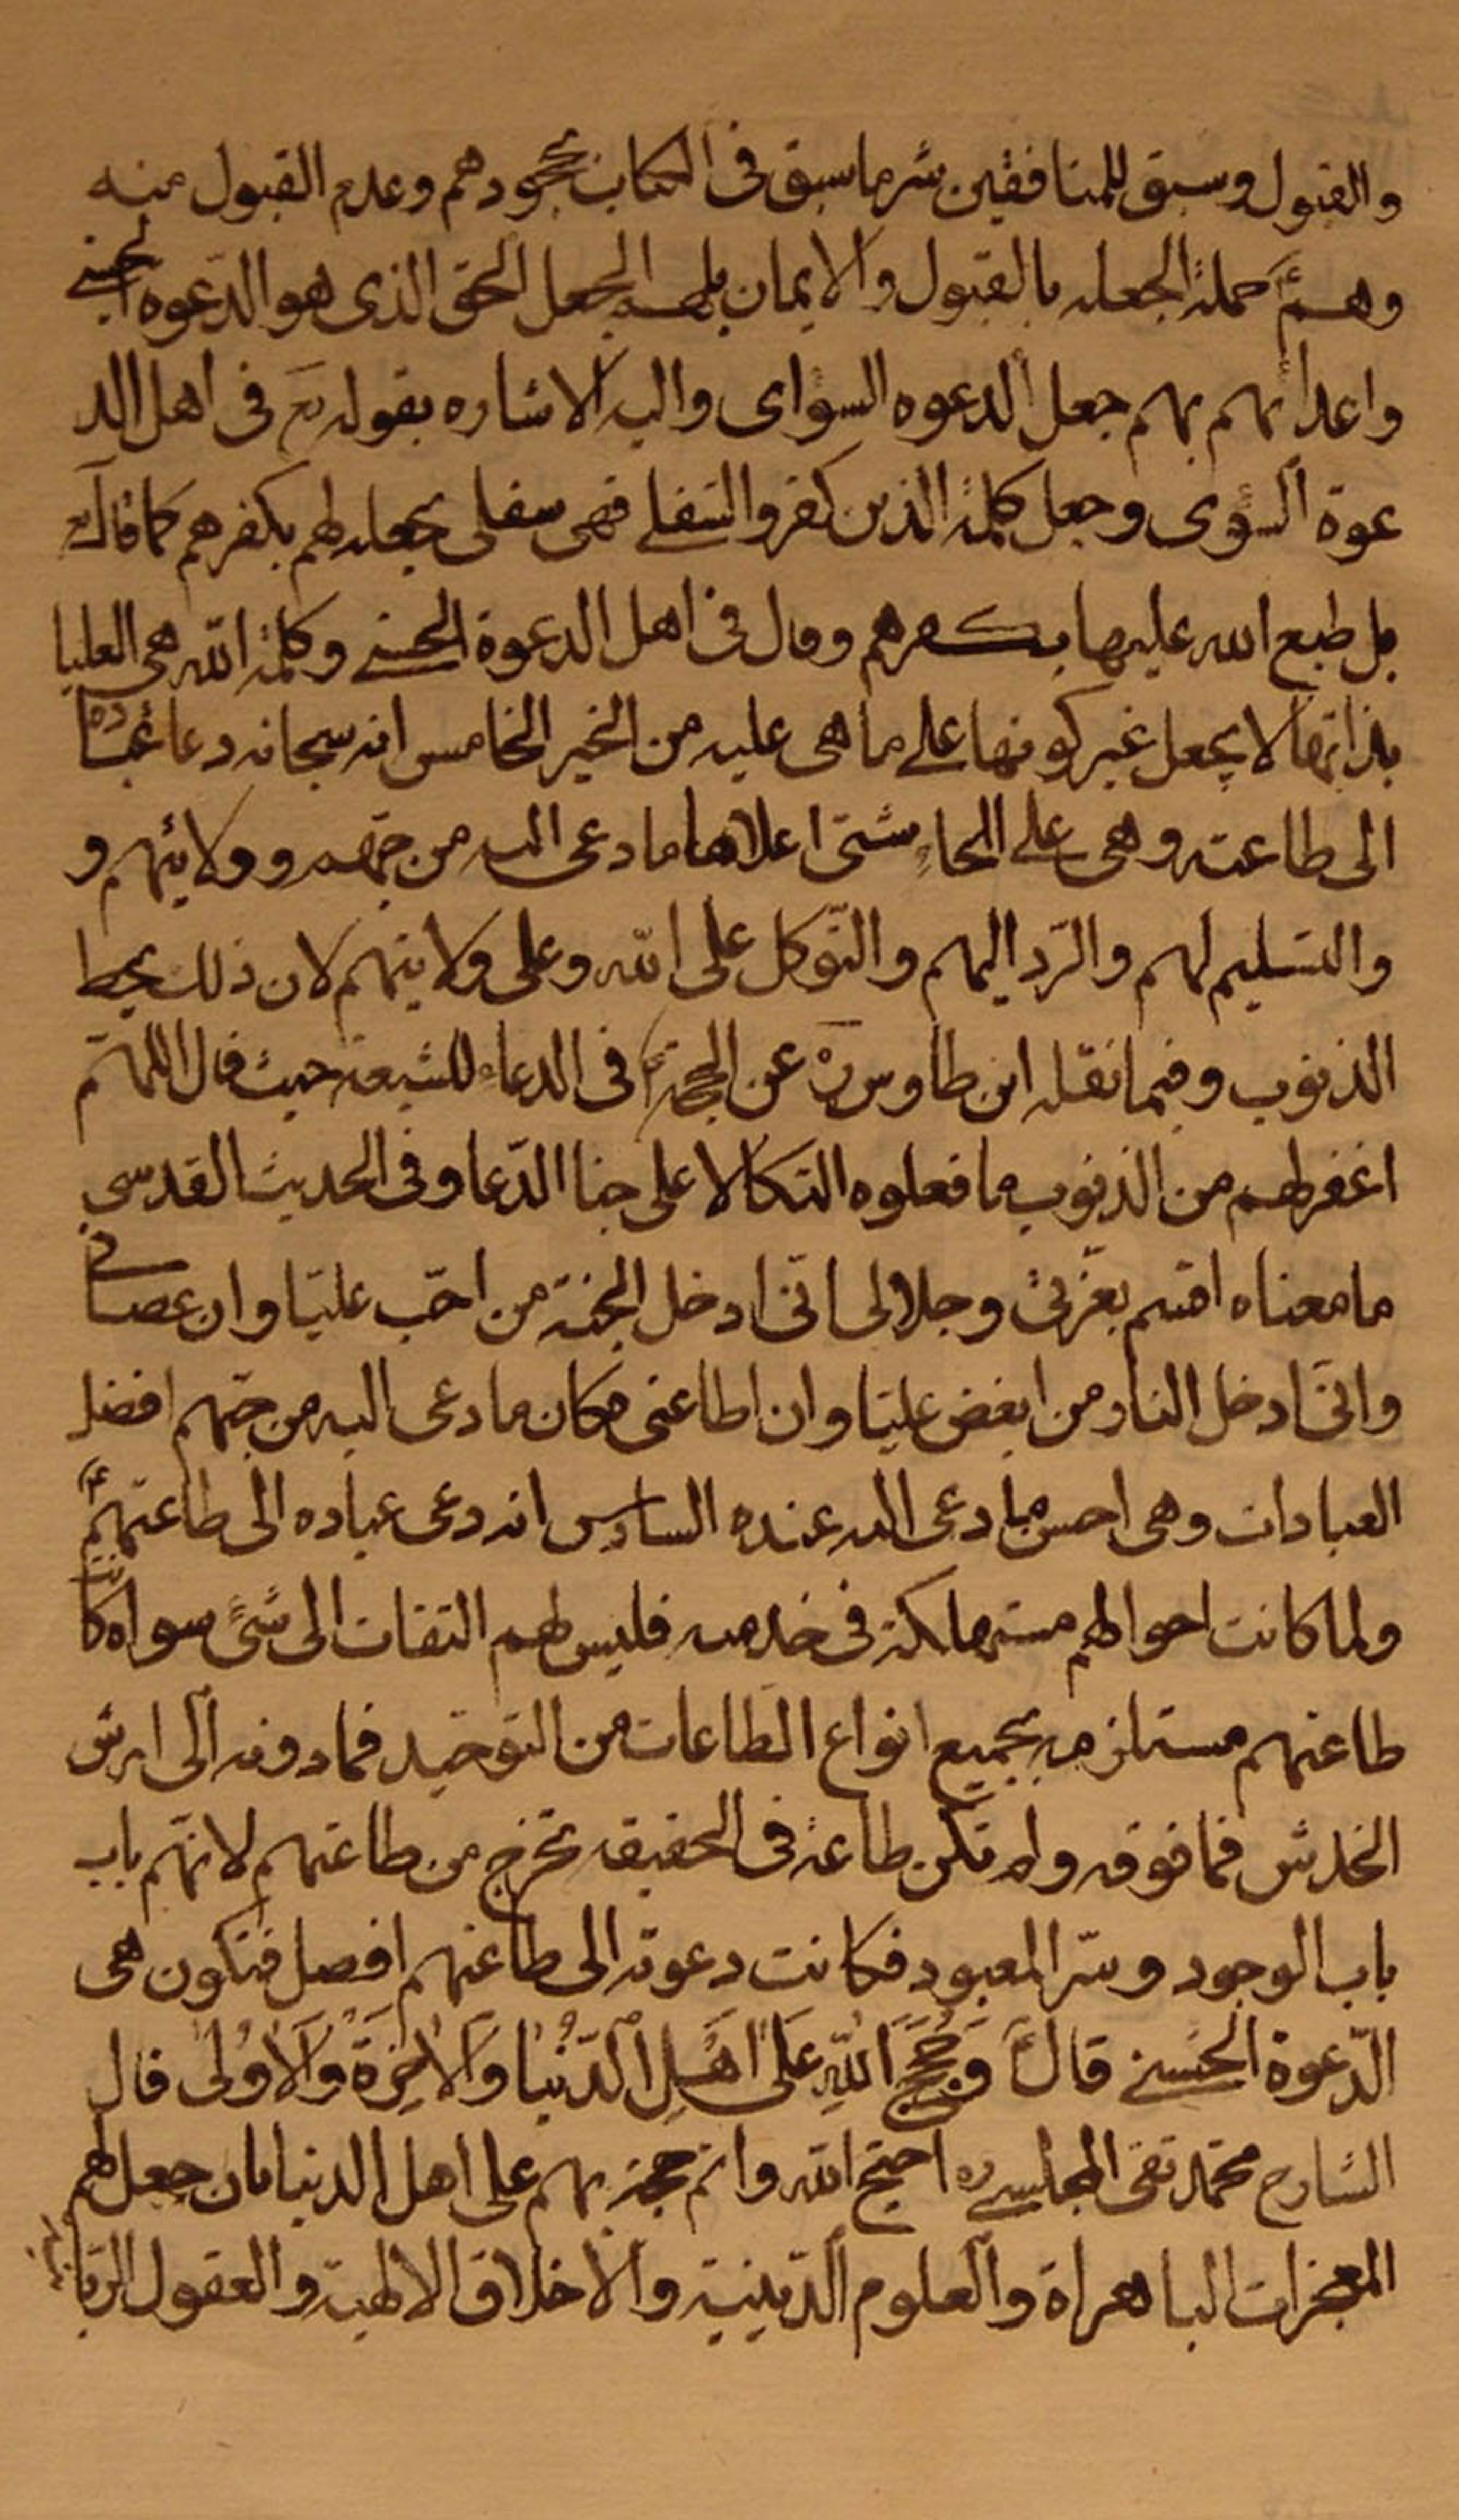 والقبول وسبق للمنافقين شر ما سبق فى الكتاب بجحودهم وعدم القبول منه
وهم حملة الجعله بالقبول والايمان بهم الجعل الحق الذى هو الدّعوه الحسنى
واعدائهم بهم جعل الدعوه السواى واليه الاشاره بقوله تع فى اهل الد
عوة السوى وجعل كلمة الذين كفروا السفلى فهى سفلى بجعله لهم بكفرهم كما قال تع
بل طبع الله عليها بكفرهم وقال فى اهل الدعوة الحسنى وكلمة الله هى العليا
بذاتها لا بجعل غير كونها على ما هى عليه من الخير الخامس انه سبحانه دعا عباده
الى طاعته وهى على انحاء شتى اعلاها ما دعى اليه من حبهم وولايتهم و
والتسليم لهم والرّد اليهم والتّوكل على الله وعلى ولايتهم لان ذلك يحط
الذنوب وفيما نقله ابن طاوس ره عن الحجة ع فى الدعاء للشيعة حيث قال اللهم
اغفر لهم من الذنوب ما فعلوه اتكالا على حبنا الدّعا وفى الحديث القدسى
ما معناه اقسم بعزّتى وجلالى انّى ادخل الجنة من احبّ عليّا وان عصانى
وانّى ادخل النار من ابغض عليّا وان اطاعنى فكان ما دعى اليه من حبّهم افضل
العبادات وهى احسن ما دعى اليه عنده السادس انه دعى عباده الى طاعتهم ع
ولما كانت احوالهم مستهلكة فى خدمته فليس لهم التفات الى شئ سواه كانت
طاعتهم مستلزمه بجميع انواع الطاعات من التوحيد فما دونه الى ارش
الخدش فما فوقه ولم تكن طاعة فى الحقيقه تخرج من طاعتهم لانّهم باب
باب الوجود وسّر المعبود فكانت دعوته الى طاعتهم افضل فتكون هى
الدّعوة الحسنى قال ع وَحُجَجِ اللّهِ عَلى اَهْلِ الدّنْيا وَالاخِرَةِ وَالاُولى قال
الشارح محمّد تقى المجلسى ره احتج الله واتم حجته بهم على اهل الدنيا بان جعل لهم
المعجزات الباهراة والعلوم الدّينية والاخلاق الالهية والعقول الربانية